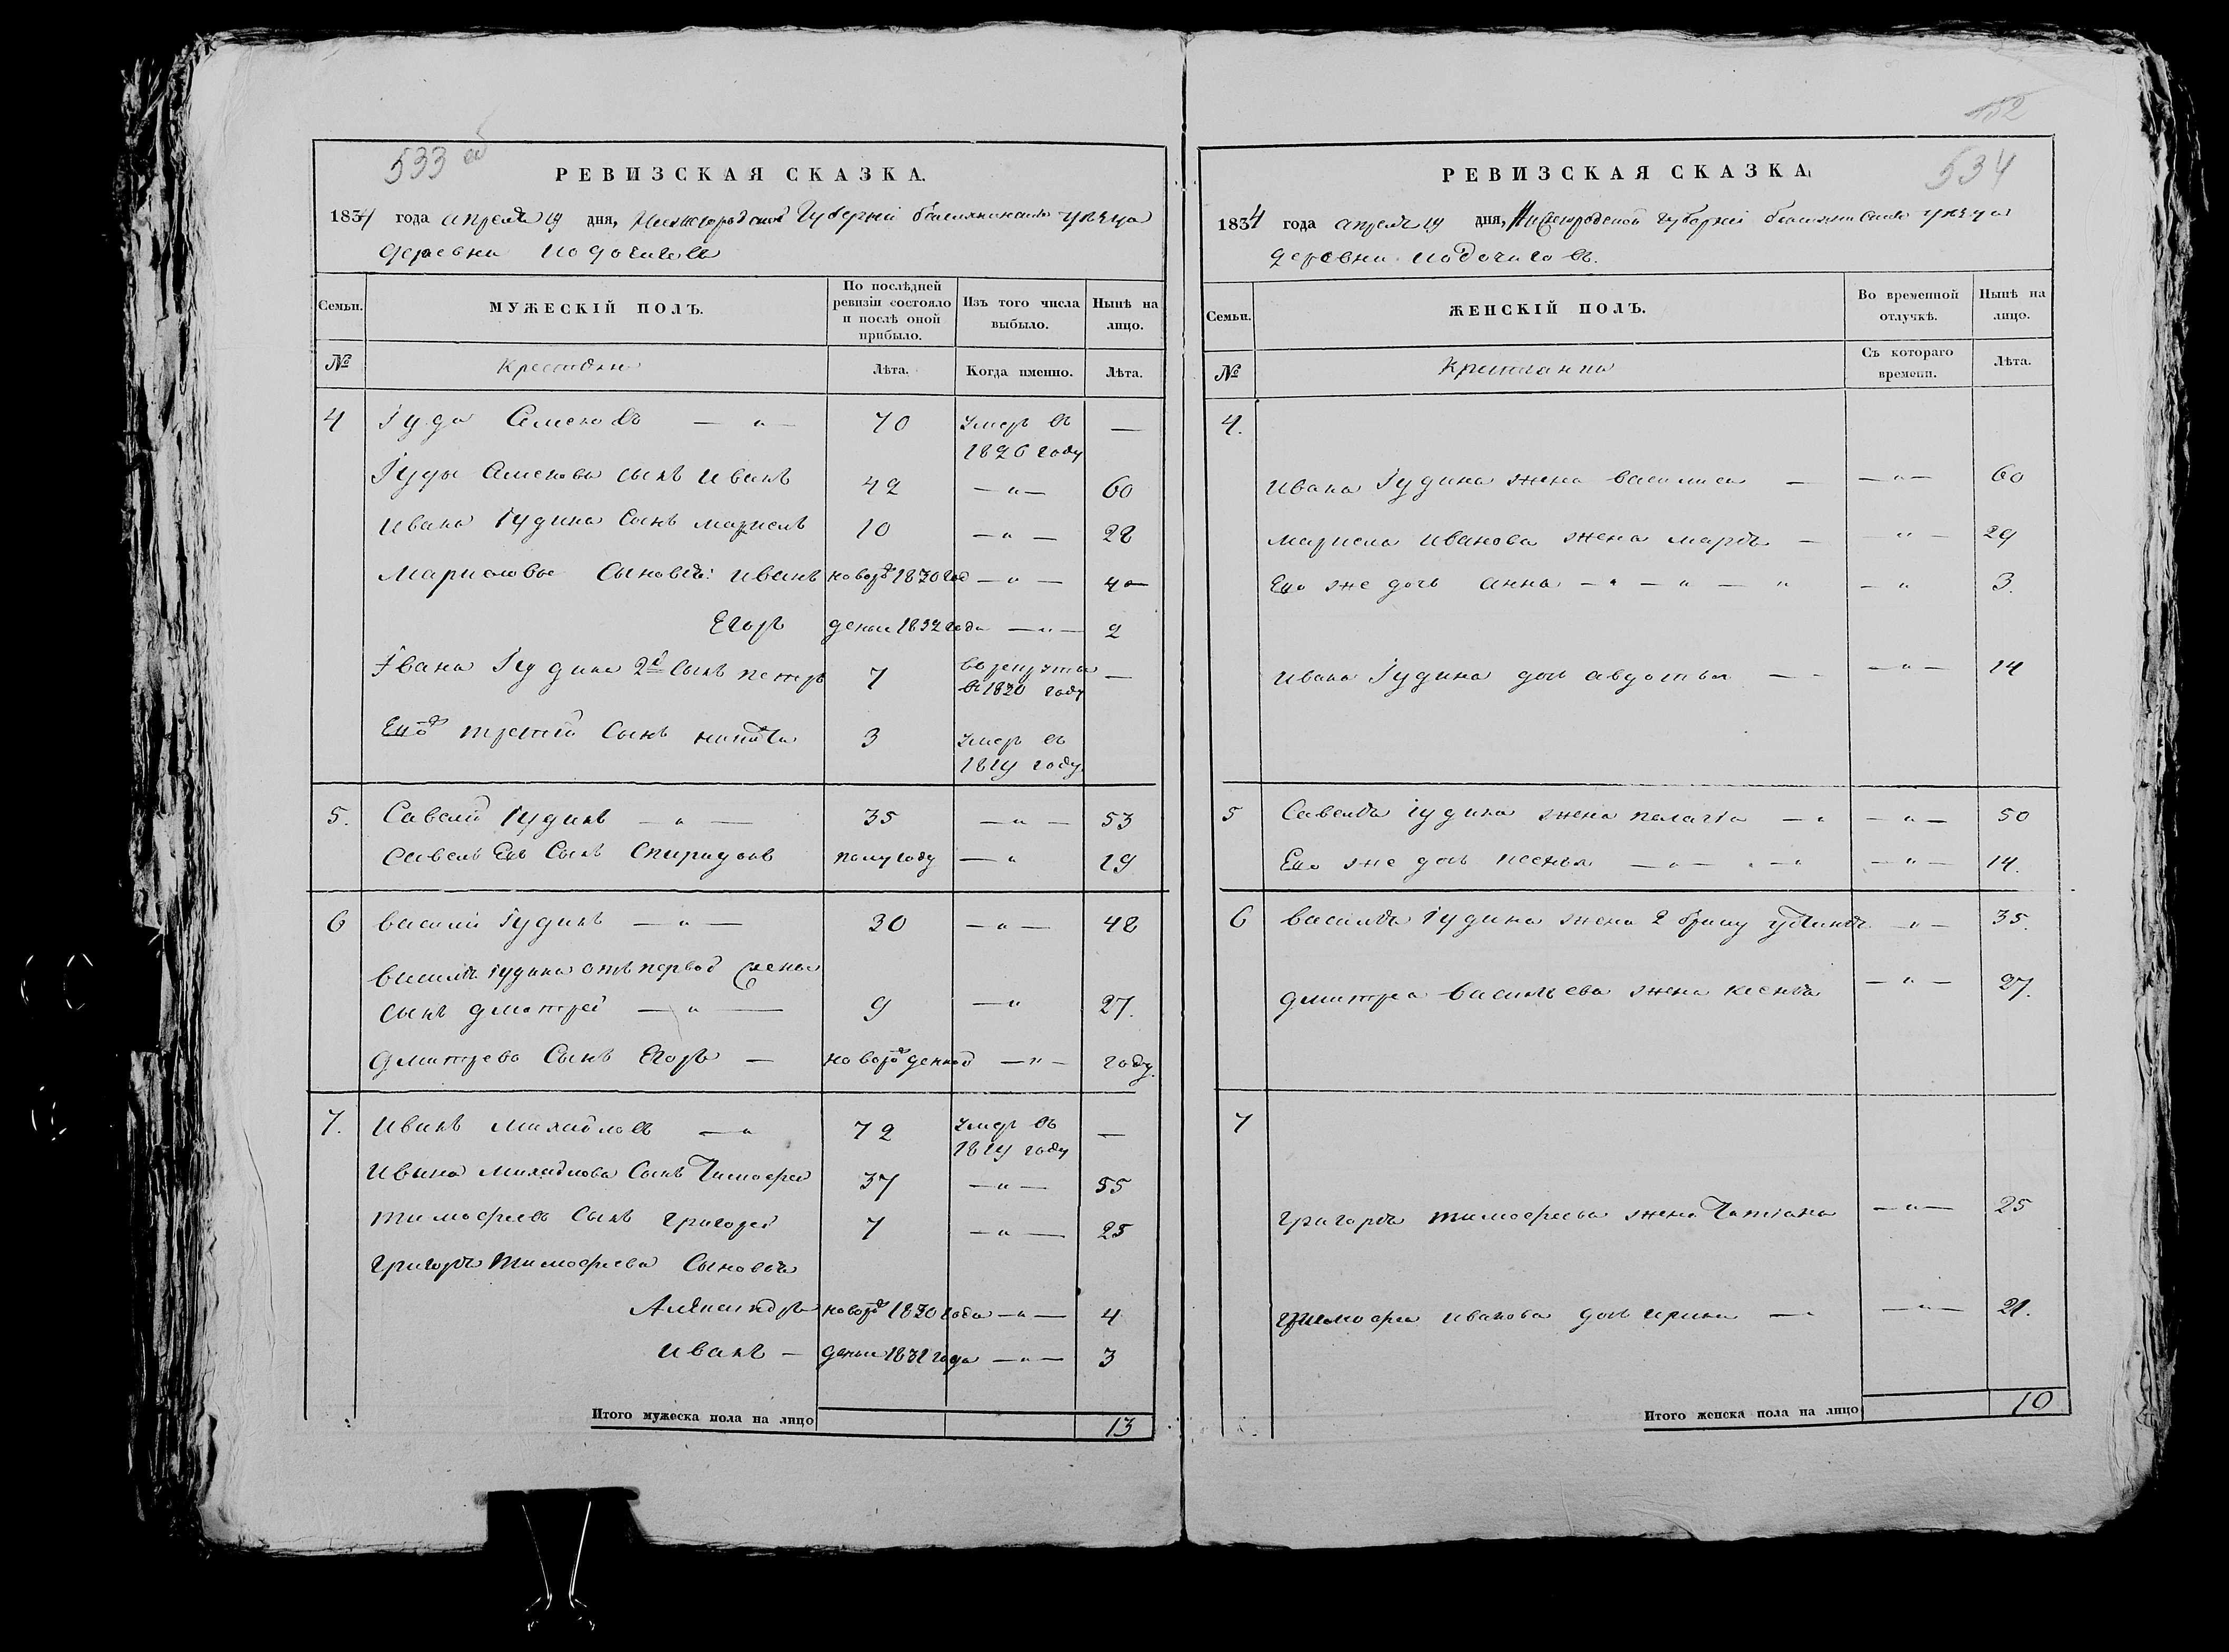 533 об
РЕВИЗСКАЯ СКАЗКА.
1834 года апреля 19 дня, Нижегородской Губернiи уезда
деревни
Семьи. МУЖЕСКІЙ ПОЛЪ. По послѣдней ревизіи состояло и послѣ оной прибыло. Изъ того числа выбыло. Нынѣ на лицо.
№ Крестьяне Лѣта. Когда именно. Лѣта.
4 Iуда Семеновъ — „ — 70 умеръ въ 1826 году —
Iуды Семенова сынъ Иванъ 42 — „ — 60
Ивана Iудина сынъ 10 — „ — 28
сыновья: Иванъ новорож 1830 год — „ — 4 —
Егоръ деные 1832 года — „ — 2
Iвана Iудина 2й сынъ петръ 7 в рекруты въ 1830 году —
Его третiй сынъ никита 3 умеръ въ 1819 году.
5. Савелiй Iудинъ — „ — 35 — „ — 53
Савелья Его сынъ Спиридонъ полугоду — „ 19
6 василiй Iудинъ — „ — 30 — „ — 48
василья iудина отъ первой жены
сынъ дмитрей — „ — 9 — „ 27.
Дмитрева Сынъ Егоръ — новорожденной — „ — году.
7. Иванъ михайловъ — „ 72 умеръ въ 1819 году —
Ивана михайлова Сынъ Тимофей 37 — „ — 55
тимофеевъ сынъ григорей 7 — „ — 25
григорья тимофеева Сыновья
Александръ новорож 1830 года — „ — 4
иванъ — деные 1831 года — „ — 3
Итого мужеска пола на лицо 13
152
534
РЕВИЗСКАЯ СКАЗКА.
1834 года апреля 19 дня, Нижегородской губернiи уезда
деревни
Семьи. ЖЕНСКІЙ ПОЛЪ. Во временной отлучкѣ. Нынѣ на лицо.
№ Крестьянки Съ котораго времени. Лѣта.
4.
ивана Iудина жена василиса — — „ — 60
иванова жена марья — — „ — 29
Его же дочь анна — „ — „ — „ — „ 3.
ивана Iудина дочь авдотья — — „ — 14
5 Савелья iудина жена пелагiя — „ — „ — 50
Его же дочь ксенья — „ — „ — „ — „ — 14.
6 василья iудина жена 2 браку устинья — „ — 35.
дмитрея васильева жена ксенья — „ — 27.
7
григорья тимофеева жена Татiана — „ — 25
тимофея иванова дочь ирина — „ — „ — 21.
Итого женска пола на лицо 10